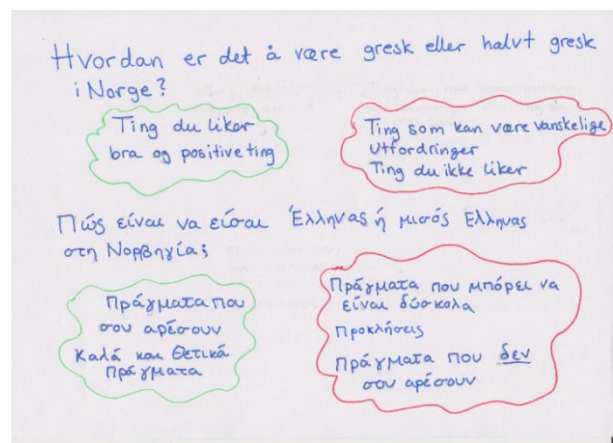 Hvordan er det å være gresk eller halvt gresk
i Norge?
Ting du liker
bra og positive ting
Ting som kan være vanskelige
Utfordringer
Ting du ikke liker
Πώς είναι να είσαι Έλληνας ή μισός Έλληνας
στη Νορβηγία;
Πράγματα που
σου αρέσουν
Καλά και θετικά
πράγματα
Πράγματα που μπόρει να
είναι δύσκολα
Προκλήσεις
Πράγματα που δεν
σου αρέσουν